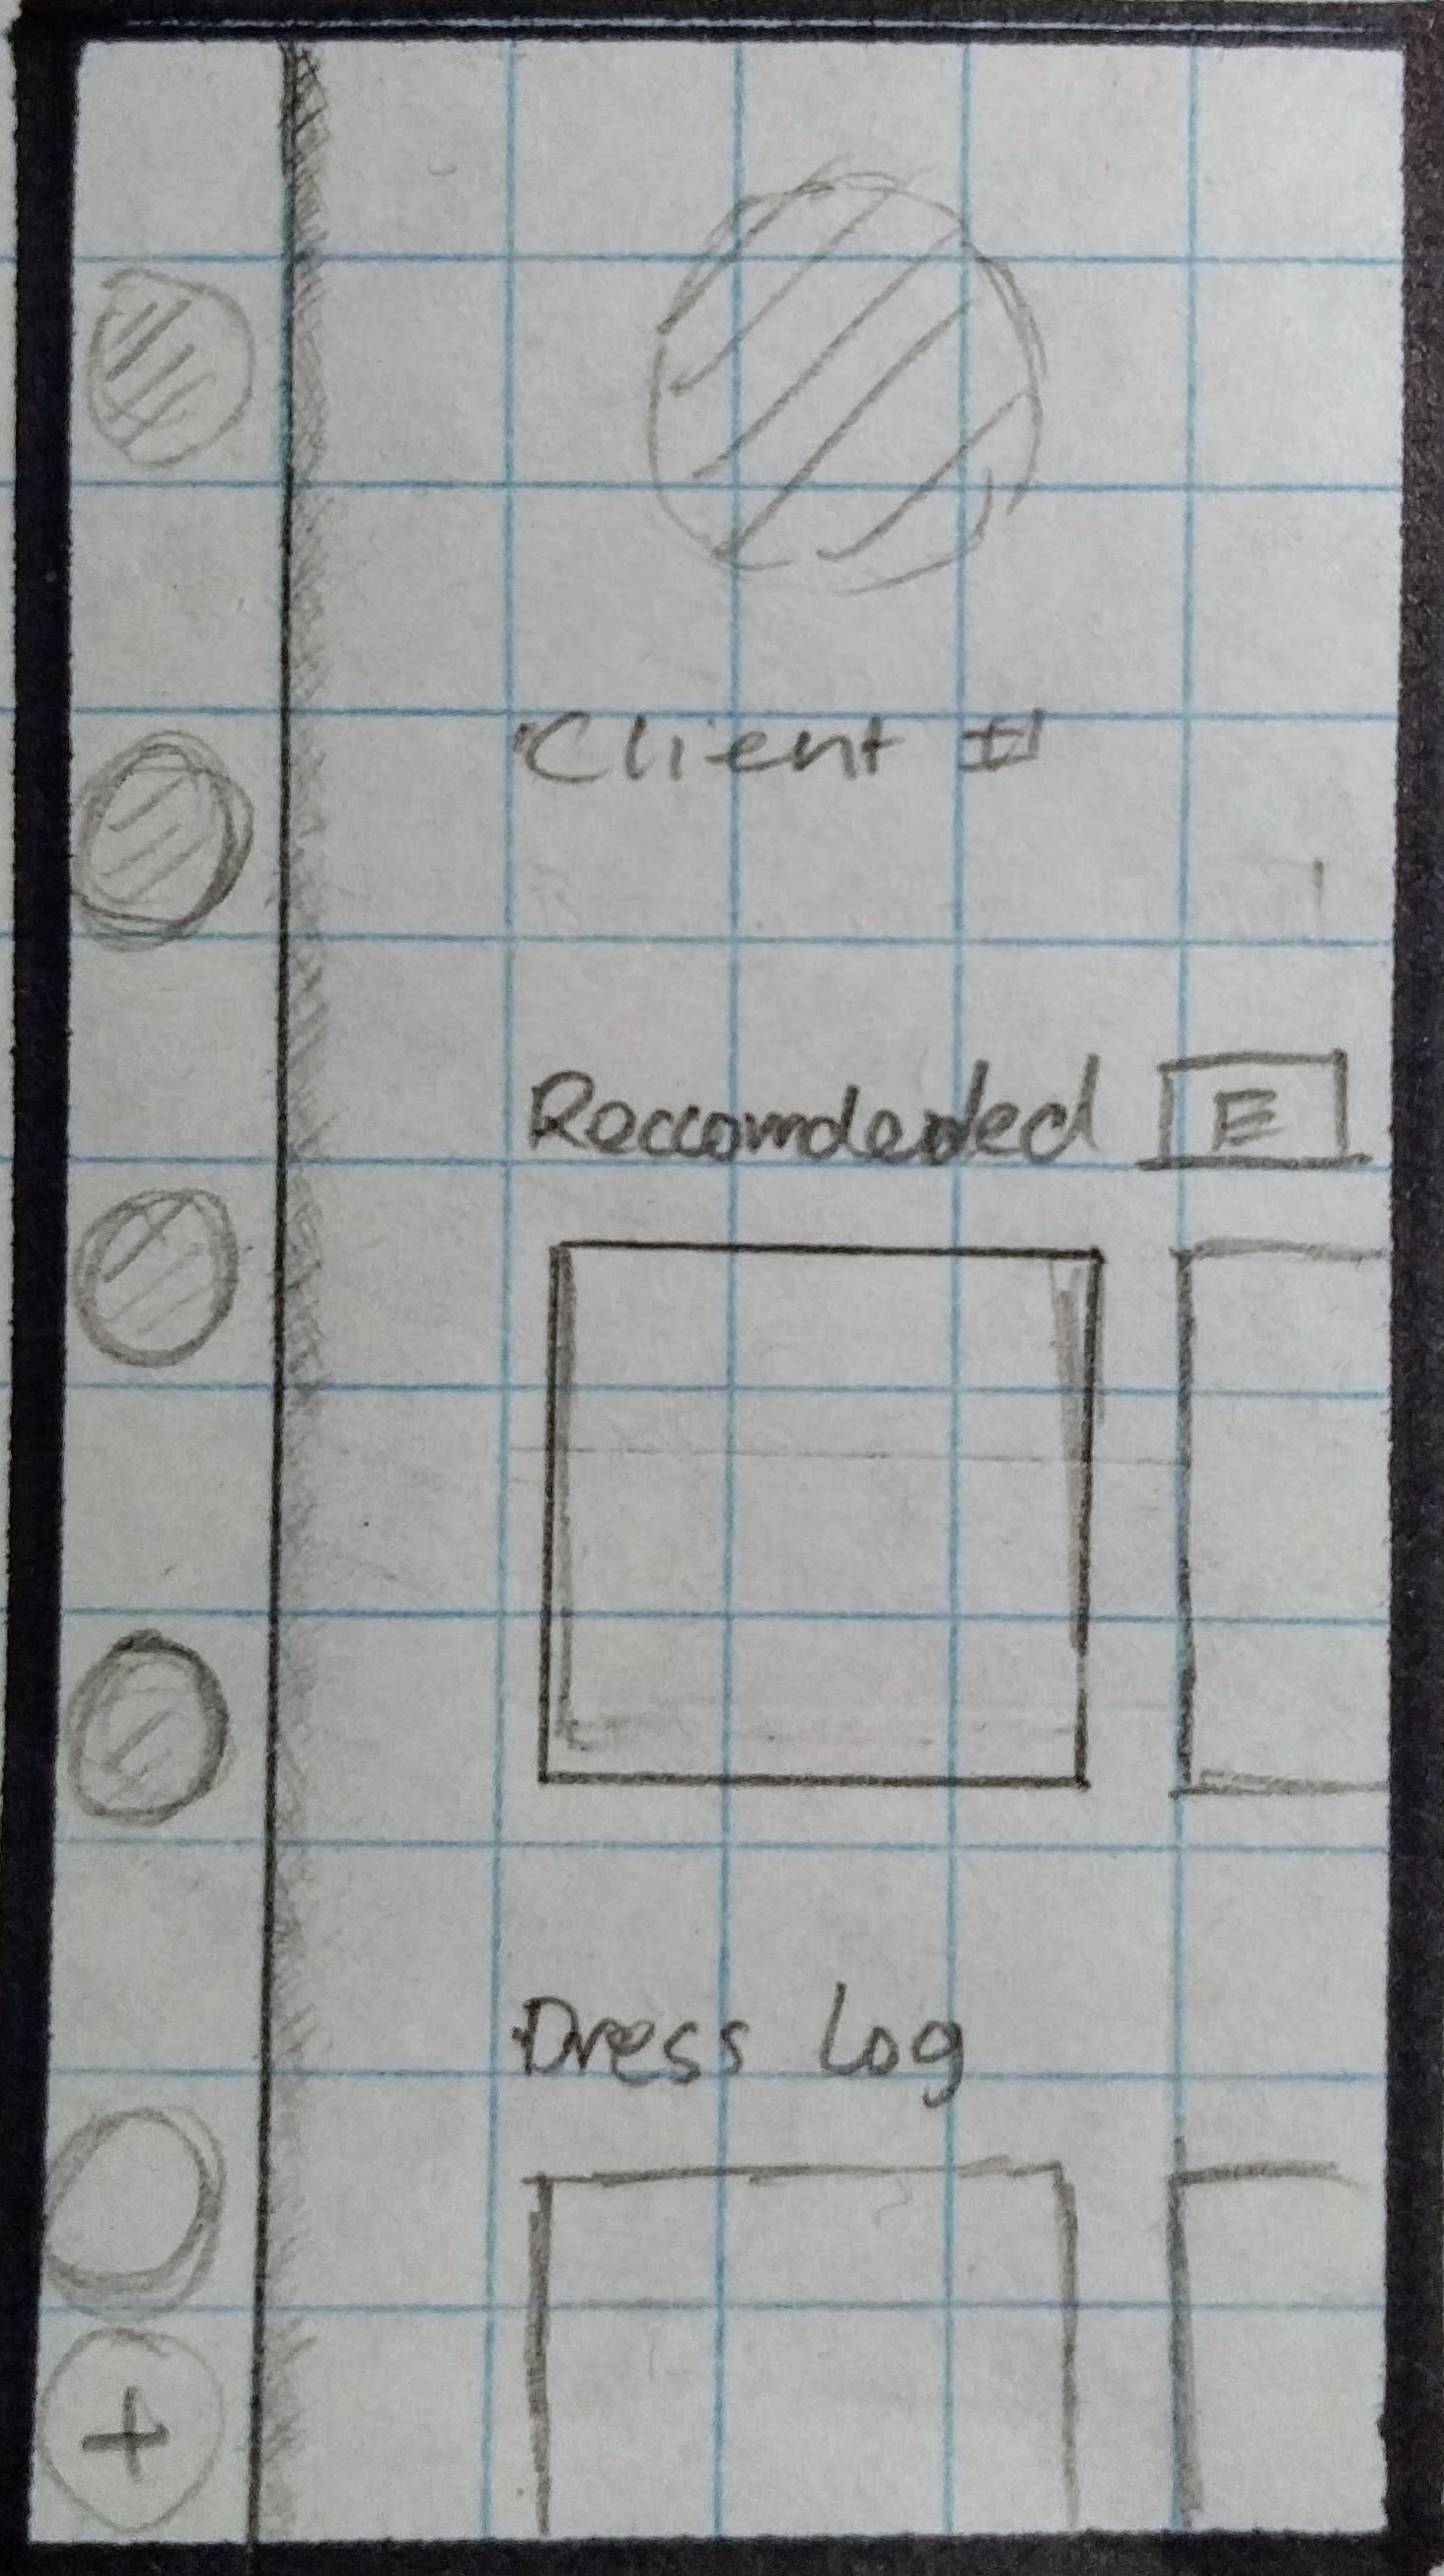 Client #
Reccomdeded E
Dress Log
+